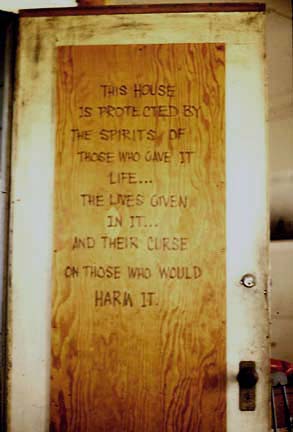 THIS HOUSE
IS PROTECTED BY
THE SPIRITS OF
THOSE WHO GAVE IT
LIFE...
THE LIVES GIVEN
IN IT...
AND THEIR CURSE
ON THOSE WHO WOULD
HARM IT.